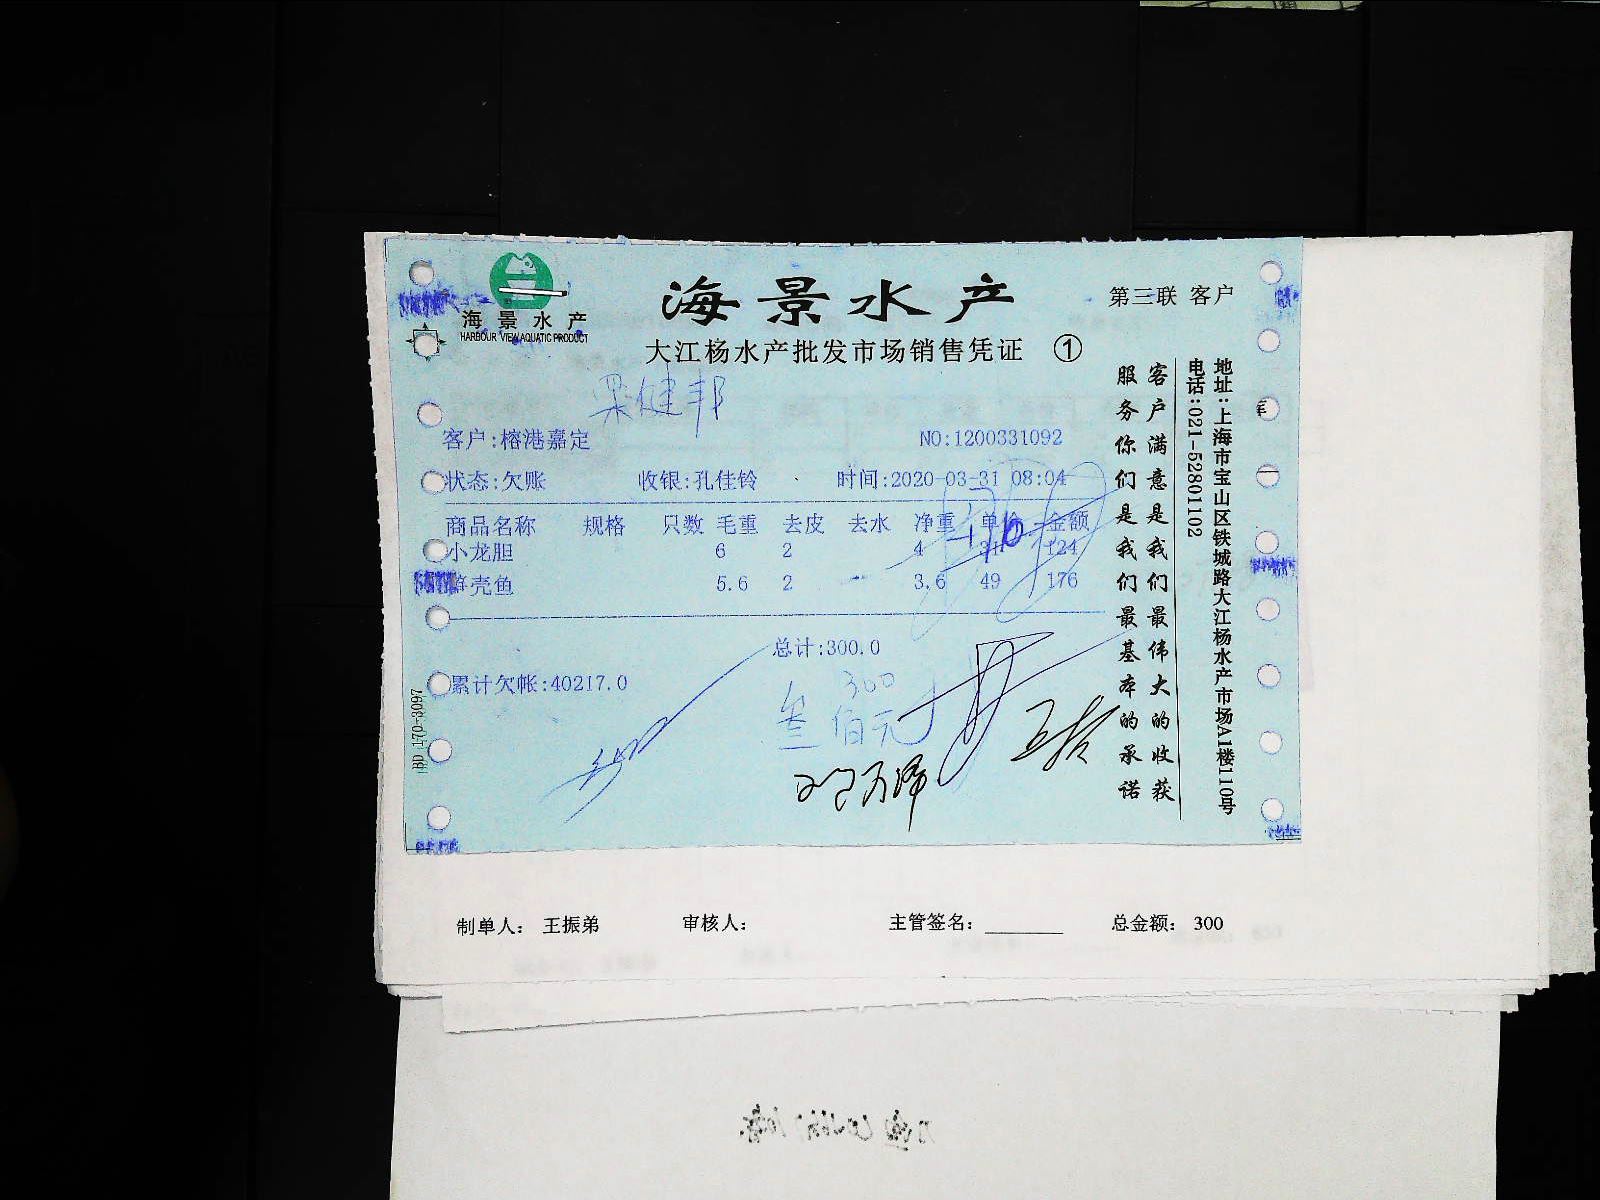 海景水产
HARBOUR VIEW AQUATIC PRODUCT
海景水产
第三联 客户
大江杨水产批发市场销售凭证 ①
梁健邦
客户:榕港嘉定
NO:1200331092
状态:欠账 收银:孔佳铃 时间:2020-03-31 08:04
商品名称 规格 只数 毛重 去皮 去水 净重 单价 金额
小龙胆 6 2 4 31 124
笋壳鱼 5.6 2 3.6 49 176
总计:300.0
累计欠帐:40217.0
300
叁佰元
客户满意是我们最伟大的收获
服务你们是我们最基本的承诺
地址:上海市宝山区铁城路大江杨水产市场A1楼110号
电话:021-52801102
制单人: 王振弟 审核人: 主管签名: 总金额: 300